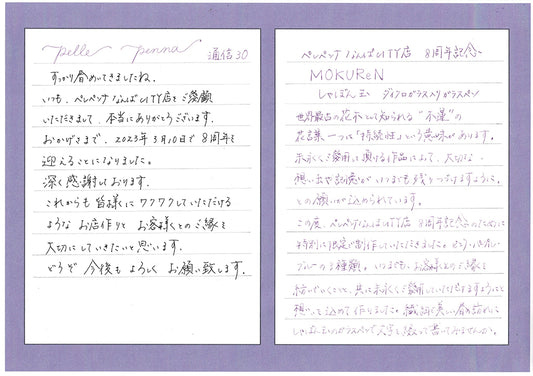 pelle penna 通信30
すっかり春めいてきましたね。
いつも、ペレペンナなんばCITY店をご愛顧
いただきまして、本当にありがとうございます。
おかげさまで、2023年3月10日で8周年を
迎えることになりました。
深く感謝しております。
これからも皆様にワクワクしていただける
ようなお店作りとお客様とのご縁を
大切にしていきたいと思います。
どうぞ今後もよろしくお願い致します。
ペレペンナなんばCITY店 8周年記念
MOKUReN
しゃぼん玉 ダイクロガラス入りガラスペン
世界最古の花木として知られる"木蓮"の
花言葉一つに「持続性」という意味があります。
末永くご愛用して頂ける作品によって、大切な
想い出や記憶がいつまでも残りつづけますように、
との願いが込められています。
この度、ペレペンナなんばCITY店 8周年記念のために
特別に限定で制作していただきました。
ブルーの3種類。いつまでも、お客様とのご縁を
紡いでいくことと、共に末永くご愛用していただけますようにと
想いを込めて作りました。繊細で美しい春の訪れに
しゃぼん玉のガラスペンで文字を綴って書いてみませんか。